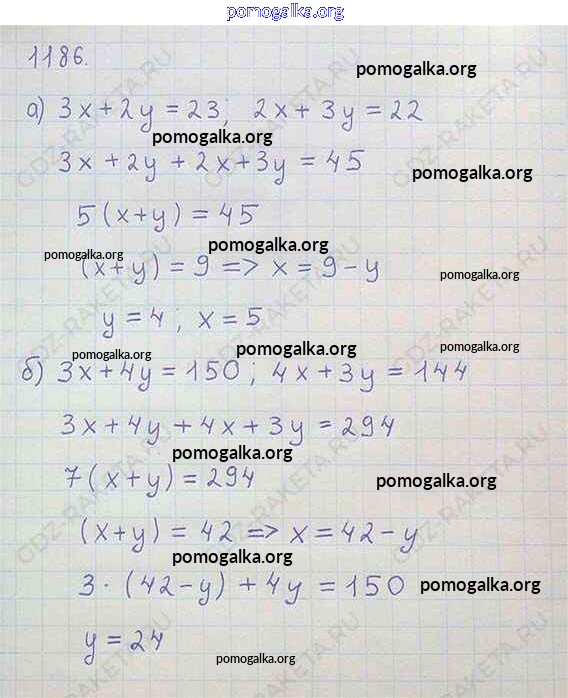 pomogalka.org
1186.
pomogalka.org
а) 3x + 2y = 23; 2x + 3y = 22
pomogalka.org
3x + 2y + 2x + 3y = 45
pomogalka.org
5(x+y) = 45
pomogalka.org pomogalka.org
(x+y) = 9 => x = 9 - y
pomogalka.org
y = 4; x = 5
pomogalka.org pomogalka.org pomogalka.org
б) 3x + 4y = 150; 4x + 3y = 144
3x + 4y + 4x + 3y = 294
pomogalka.org
7(x+y) = 294
pomogalka.org
(x+y) = 42 => x = 42 - y
pomogalka.org
3 · (42 - y) + 4y = 150
pomogalka.org
y = 24
pomogalka.org
GDZ-RAKETA.RU